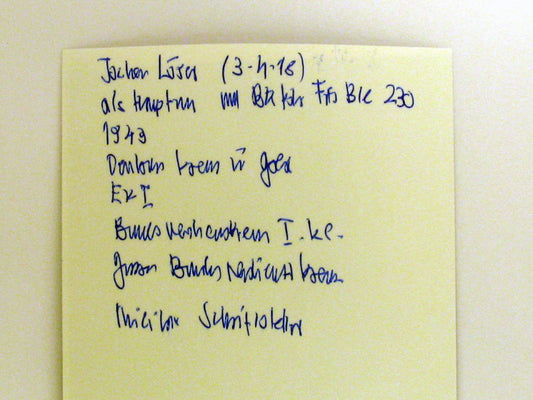 Jochen Löser (3.4.18)
als Hauptm und Btl Füs Btl 230
1943
Deutsches Kreuz in Gold
EK I
Bundesverdienstkreuz I. Kl.
Grosses Bundesverdienstkreuz
Militär Schriftsteller